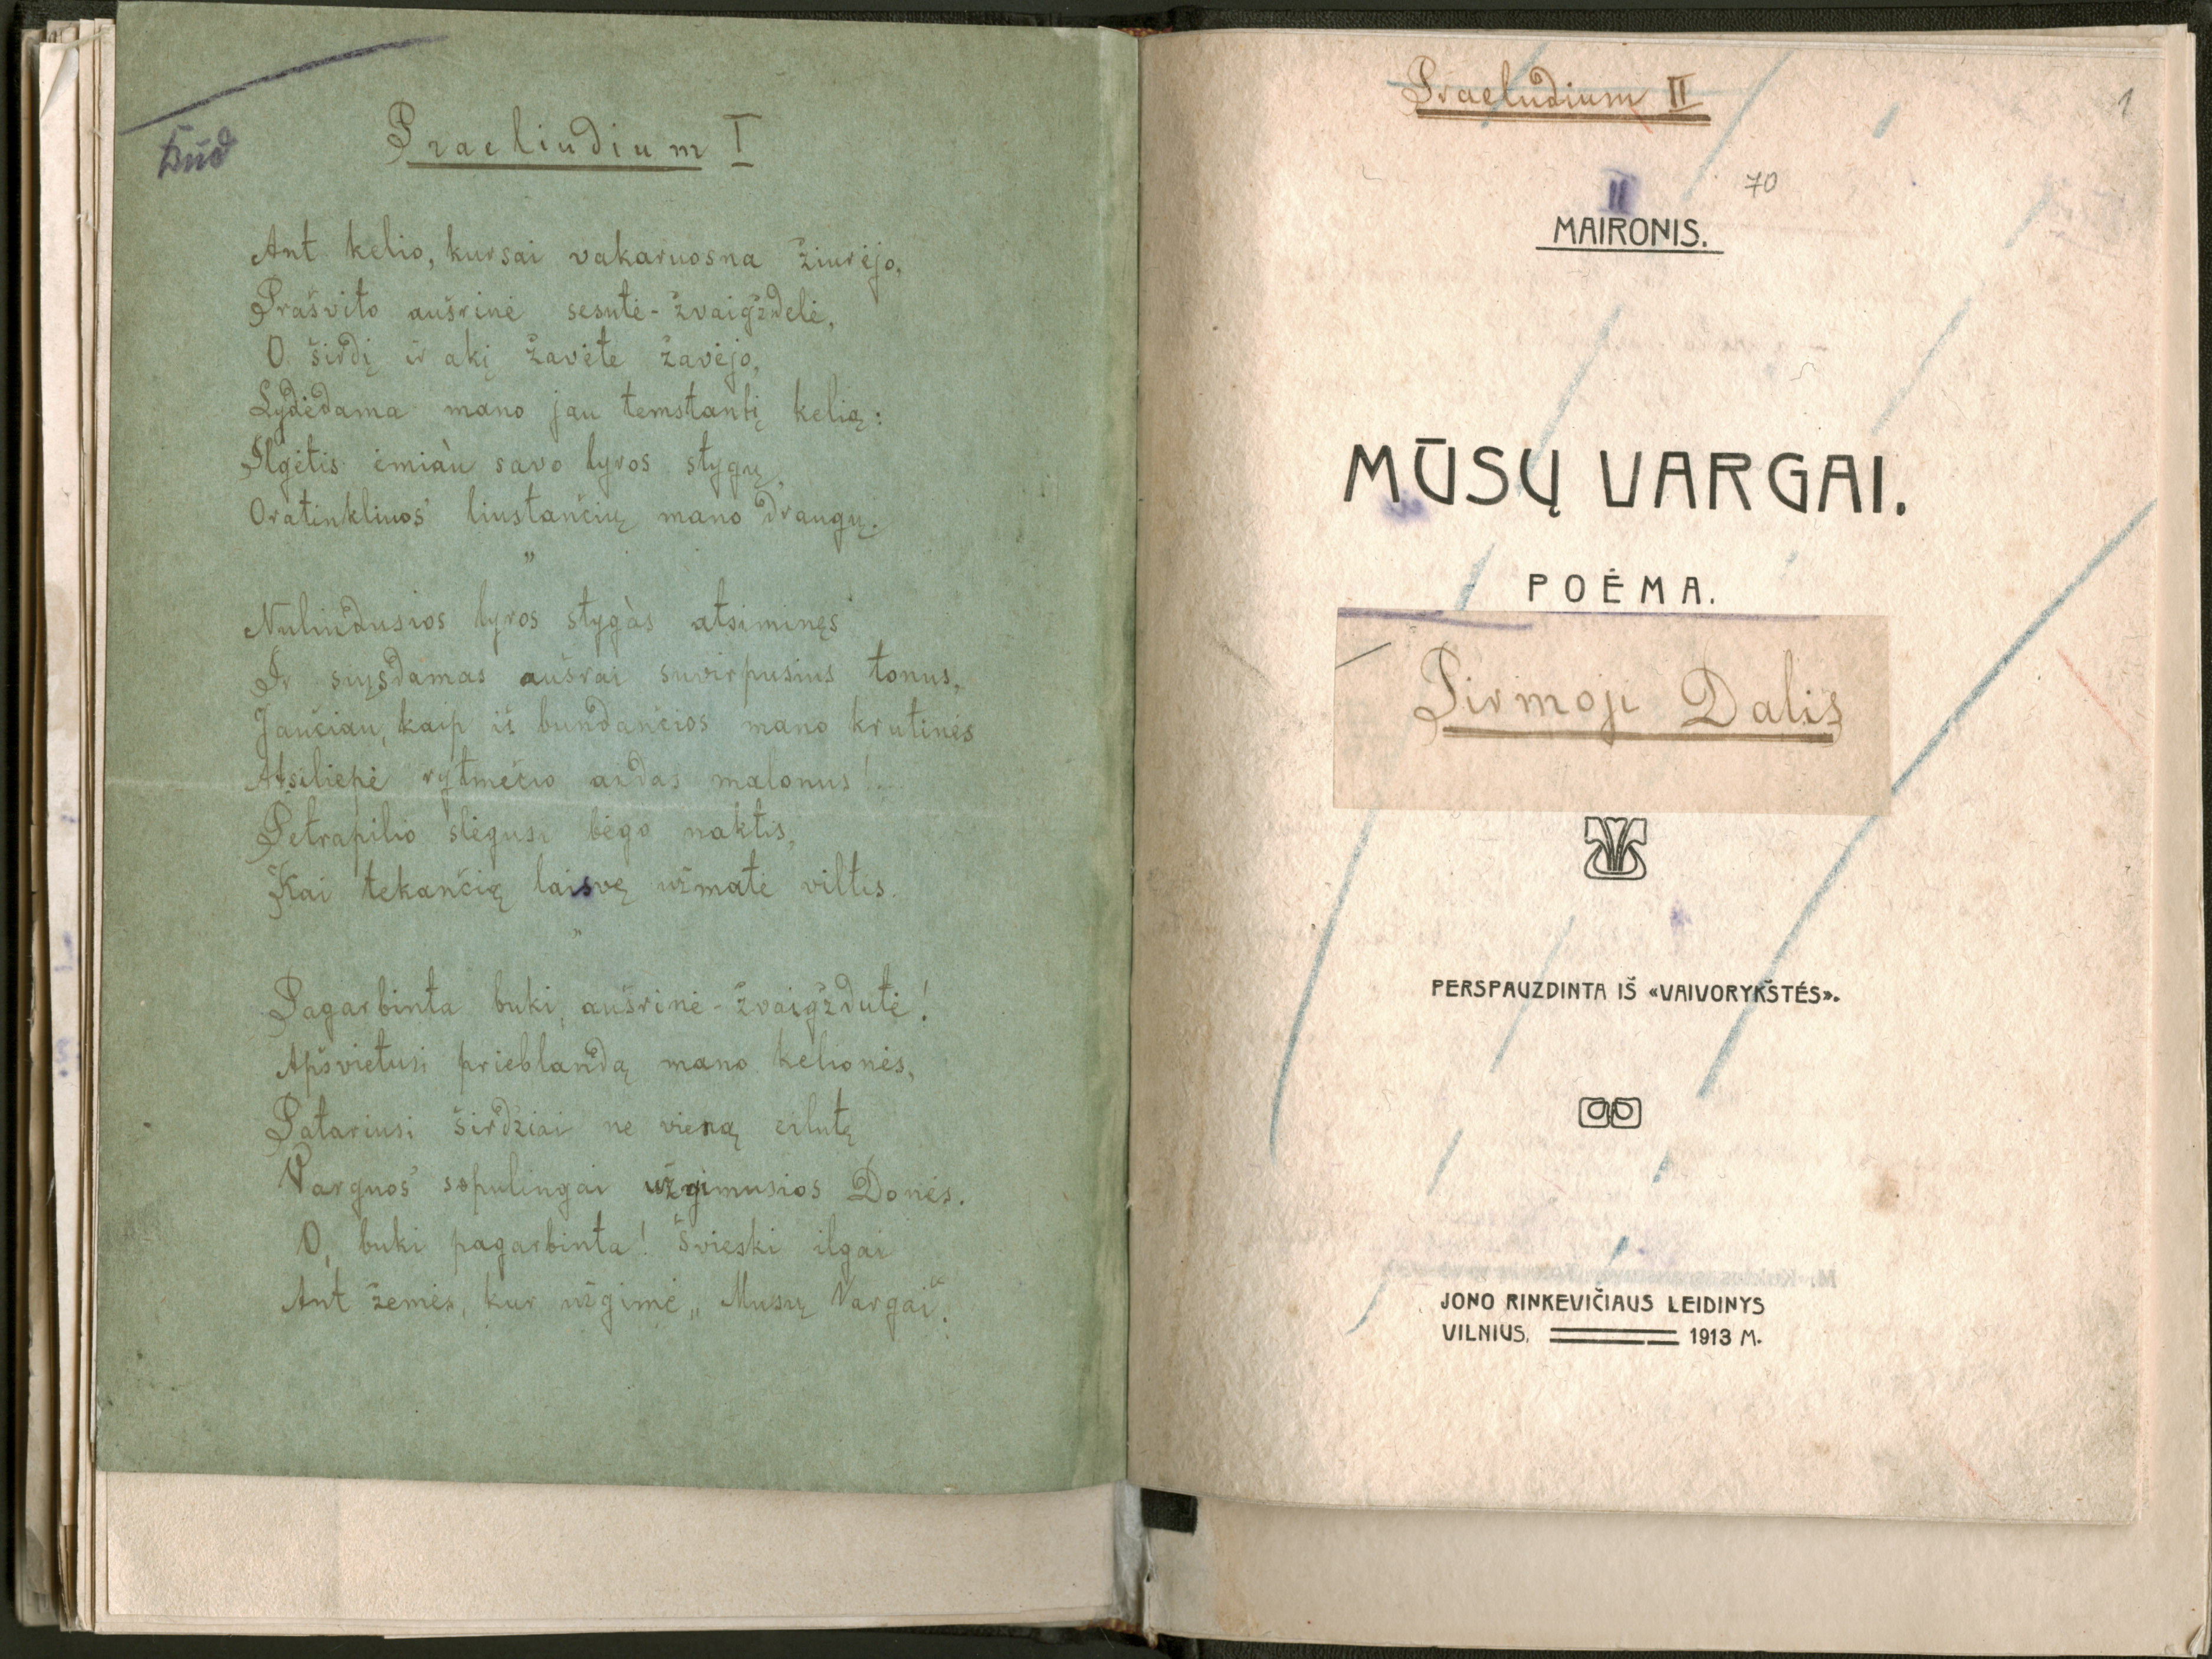 Praeliudium I
Ant kelio, kursai vakaruosna žiurėjo,
Prašvito aušrinė sesutė-žvaigždelė,
O širdį ir akį žavėte žavėjo,
Lydėdama mano jau temstantį kelią:
Ilgėtis ėmiàu savo lyros stygų,
Oratinkliuos liustančių mano draugų.
"
Nuliudusios lyros stygàs atsiminęs
Ir siųsdamas aušrai suvirpusius tonus,
Jaučiau, kaip iš bundančios mano krutinės
Atsiliepė rytmečio aidas malonus!..
Petrapilio slėgusi bėgo naktis,
Kai tekančią laisvę užmatė viltis.
"
Pagarbinta buki, aušrinė-žvaigždutė!
Apšvietusi prieblandą mano kelionės,
Patariusi širdžiai ne vieną eilutę
Varguos sopulingai užgimusios Donės.
O, buki pagarbinta! švieski ilgai
Ant žemės, kur užgimė „Musų Vargai".
Praeludium II
1
II
70
MAIRONIS.
MŪSŲ VARGAI.
POĖMA.
Pirmoji Dalis
PERSPAUZDINTA IŠ «VAIVORYKŠTĖS».
JONO RINKEVIČIAUS LEIDINYS
VILNIUS. 1913 M.